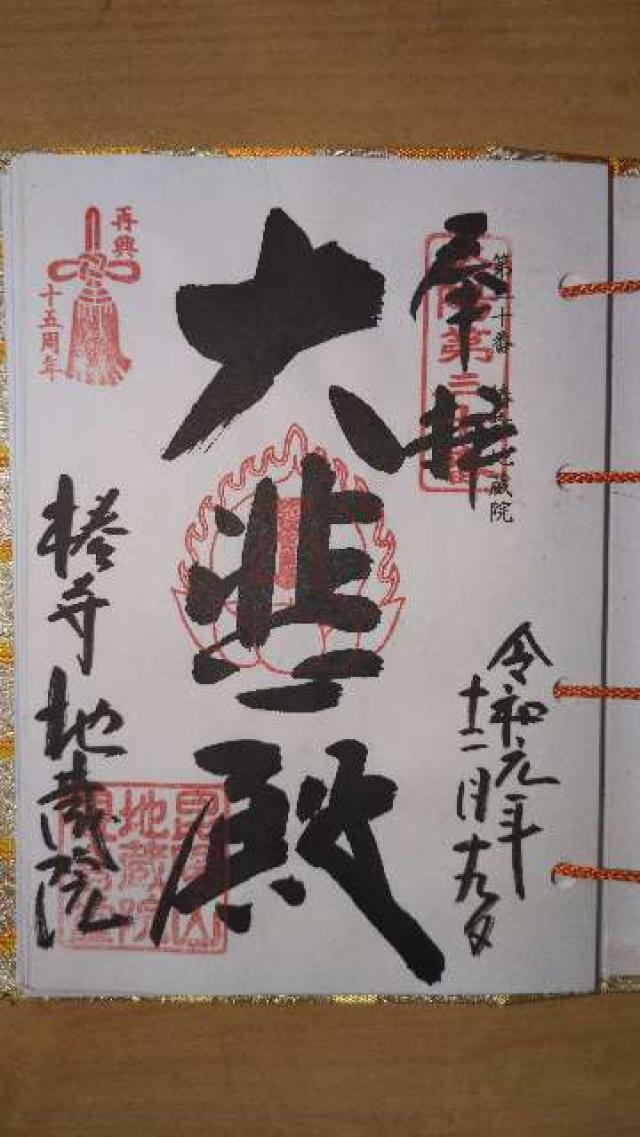 奉拝
第三十番 椿寺 地蔵院
令和元年
十二月十九日
大悲殿
再興
十五周年
椿寺 地蔵院
地蔵院